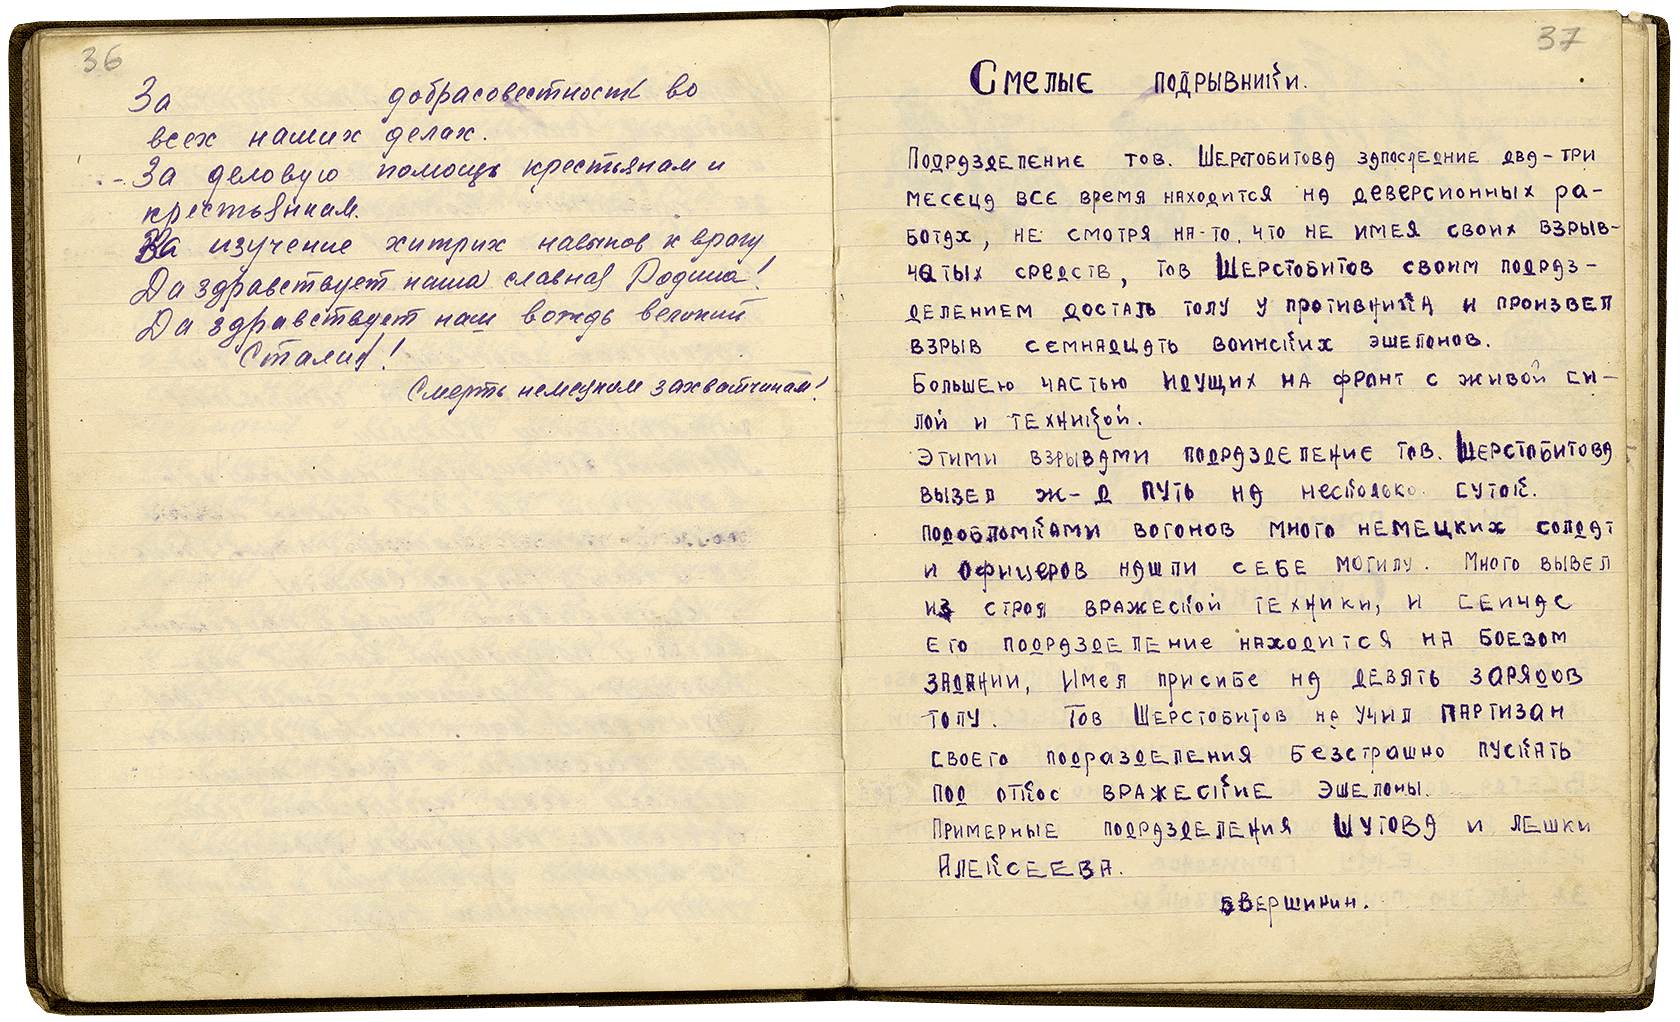 36
За добрасовестность во
всех наших делах.
- За деловую помощь крестьянам и
крестьянкам.
За изучение хитрих навыков к врагу
Да здравствует наша славная Родина!
Да здравствует наш вождь великий
Сталин!
Смерть немецким захватчикам!
37
Смелые подрывники.
Подразделение тов. Шерстобитова запоследние два-три
месеца все время находится на деверсионных ра-
ботах, не смотря на-то, что не имея своих взрыв-
чатых средств, тов Шерстобитов своим подраз-
делением достать толу у противника и произвел
взрыв семнадцать воинских эшелонов.
Большею частью идущих на фронт с живой си-
лой и техникой.
Этими взрывами подразделение тов. Шерстобитова
вызел ж-д путь на несколько суток.
подобломками вогонов много немецких солдат
и офицеров нашли себе могилу. Много вывел
из строя вражеской техники, и сеичас
его подразделение находится на боезом
задании, Имея присибе на девять зарядов
толу. Тов Шерстобитов на учил партизан
своего подразделения безстрашно пускать
под откос вражеские эшелоны.
Примерные подразделения Шутова и лешки
Алексеева.
Вершинин.